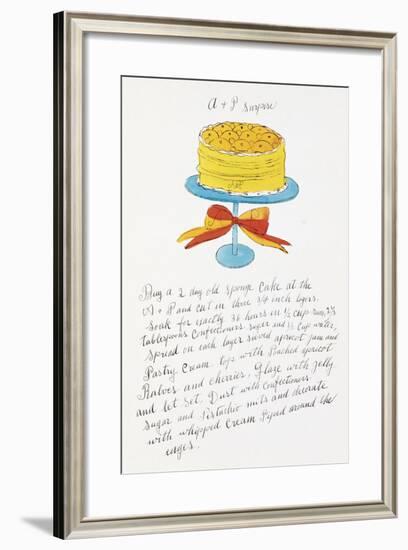 A + P Surprise
Buy a 2 day old sponge cake at the
A + P and cut in three 3/4 inch layers.
Soak for exactly 36 hours in 1/2 cup rum, 2
tablespoons Confectioners sugar and 1/2 Cup water,
spread on each layer sieved apricot jam and
Pastry Cream. top with Poached apricot
Halves and cherries, Glaze with Jelly
and let set. Dust with Confectioners
sugar and Pistachio nuts and decorate
with whipped Cream Piped around the
edges.